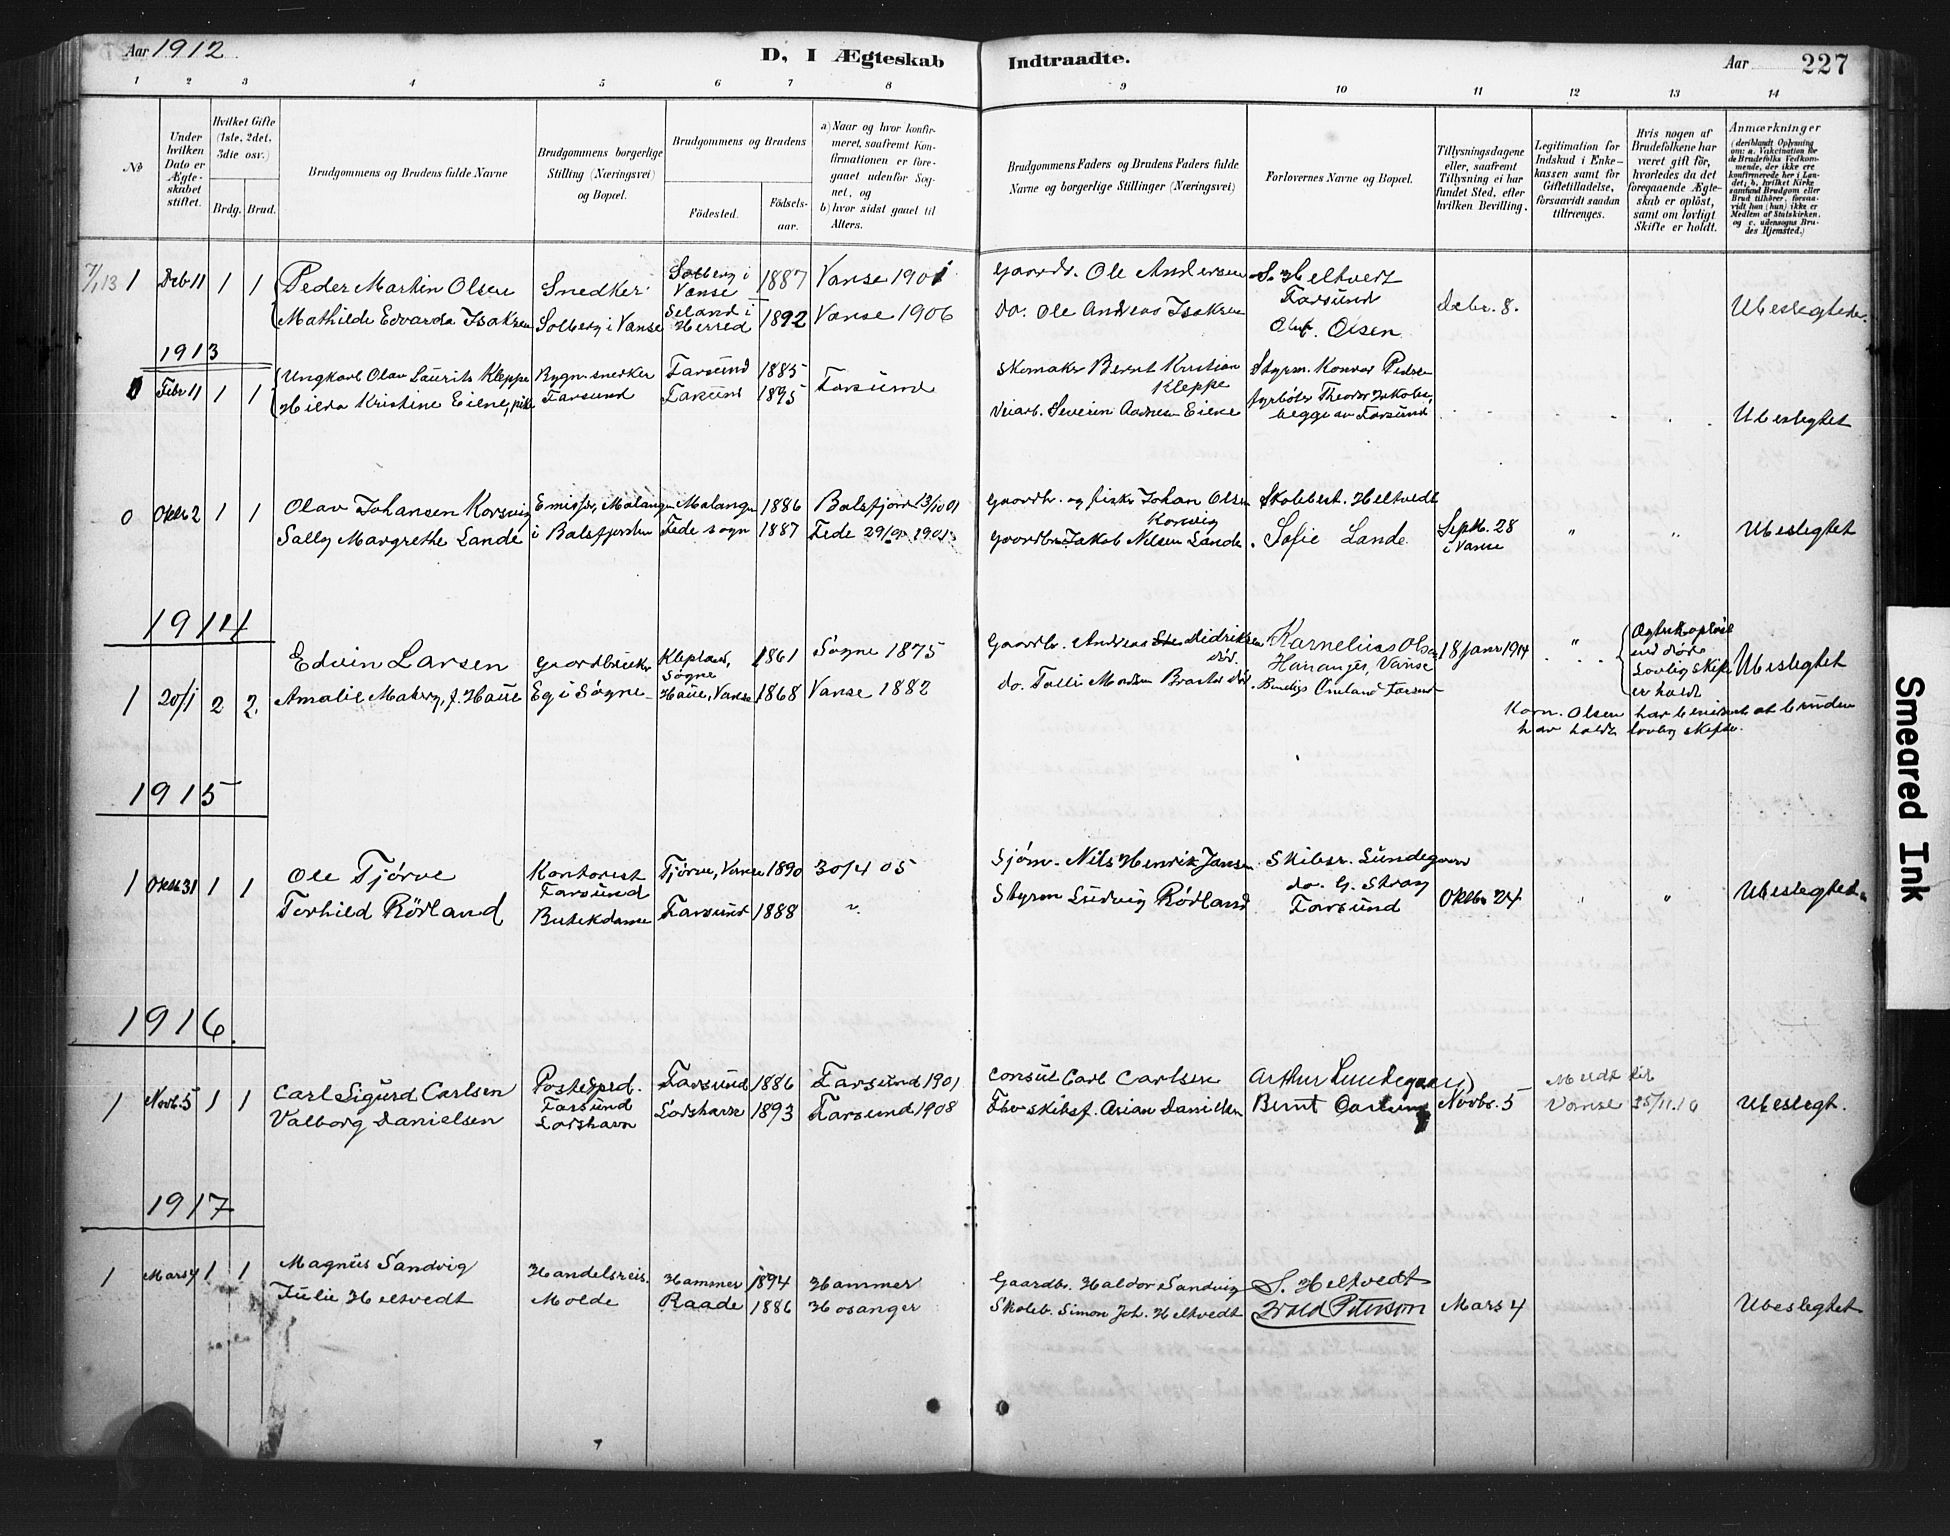 Aar 1912
D, I Ægteskab Indtraadte.
Aar 227
1 2 3 4 5 6 7 8 9 10 11 12 13 14
No
Under hvilken Dato er Ægteskabet stiftet.
Hvilket Gifte (1ste, 2det, 3die osv.)
Brdg. Brud.
Brudgommens og Brudens fulde Navne
Brudgommens borgerlige Stilling (Næringsvei) og Bopæl.
Brudgommens og Brudens
Fødested.
Fødselsaar.
a) Naar og hvor konfirmeret, saafremt Konfirmationen er foregaaet udenfor Sognet, og
b) hvor sidst gaaet til Alters.
Brudgommens Faders og Brudens Faders fulde Navne og borgerlige Stillinger (Næringsvei)
Forlovernes Navne og Bopæl.
Tillysningsdagene eller, saafremt Tillysning ei har fundet Sted, efter hvilken Bevilling.
Legitimation for Indskud i Enkekassen samt for Giftetilladelse, forsaavidt saadan tiltrænges.
Hvis nogen af Brudefolkene har været gift før, hvorledes da det foregaaende Ægteskab er opløst, samt om lovligt Skifte er holdt.
Anmærkninger (deriblandt Oplysning om: a. Vakcination for de Brudefolks Vedkommende, der ikke ere konfirmerede her i Landet; b. hvilket Kirkesamfund Brudgom eller Brud tilhører, forsaavidt han (hun) ikke er Medlem af Statskirken. og c. udensogns Brudes Hjemsted.)
7/1 13 1 Deb 11 1 1 Peder Martin Olsen Snedker Solberg i Vanse 1887 Vanse 1901 Gaardb. Ole Andersen S. Heltvedt Farsund
Mathilde Edvarda Isaksen Solberg i Vanse Seland i Herred 1892 Vanse 1906 do. Ole Andreas Isaksen Oluf Olsen Debr. 8. Ubeslegtede.
1913
1 Febr 11 1 1 Ungkarl Olav Laurits Kleppe Bygn.snekker Farsund 1885 Farsund Skomaker Bernt Kristian Kleppe Styrm. Konrad Peders
Hilda Kristine Eiene, pike Farsund Farsund 1895 Veiarb. Severin Andreas Eiene fyrbøter Theodor Jakobs, begge av Farsund Ubeslegtet
0 Oktb 2 1 1 Olav Johansen Korsvig Emissær, Malangen Malangen 1886 Balsfjord 13/10 01 Gaardb. og fisker Johan Olsen Korsvig Skolebest. Heltvedt
Sally Margrethe Lande i Balsfjorden Fede sogn 1887 Fede 29/9 1901 Gaardbr. Jakob Nilsen Lande Sofie Lande Septb. 28 i Vanse " " Ubeslegtet
1914
Edvin Larsen Gaardbruker Klepland, Søgne 1861 Søgne 1875 Gaardb. Andreas Didriksen død. Karnelius Olsen Hananger, Vanse 18 janr 1914 " Ubeslegtet
1 20/1 2 2. Amalie Maberg, f. Haue Eg i Søgne Haue, Vanse 1868 Vanse 1882 do. Tolli Madsen død. Omland Farsund
er holdt
Korn. Olsen har bevidnet at bruden
har holdt lovlig skifte.
1915
1 Oktb 31 1 1 Ole Tjørve Kontorist Farsund Tjørve, Vanse 1890 30/4 05 Sjøm. Nils Henrik Jansen Skibsr. Lundegaard
Torhild Rørland Butikdame Farsund 1888 " Styrm Ludvig Rørland do. G. Stray Farsund Oktbr 24 " " Ubeslegtede
1916.
1 Novb. 5 1 1 Carl Sigurd Carlsen Postexped. Farsund Farsund 1886 Farsund 1901 Consul Carl Carlsen Arthur Lundegaard Meldt til
Valborg Danielsen Loshavn Loshavn 1893 Farsund 1908 Fhv skibsf. Arian Danielsen Bernt Carlsen Novbr. 5 Vanse 15/11.16 Ubeslegt.
1917
1 Mars 4 1 1 Magnus Sandvig Handelsreis. Hammer 1894 Hammer Gaardbr. Haldor Sandvig S. Heltvedt
Julie Heltvedt Molde Raade 1886 Hosanger Skoleb. Simon Joh. Heltvedt Peterson Mars 4 Ubeslegtet
Smeared Ink